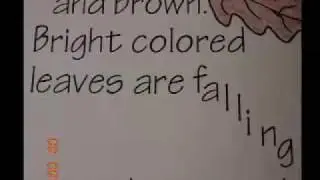 and brown.
Bright colored
leaves are falling